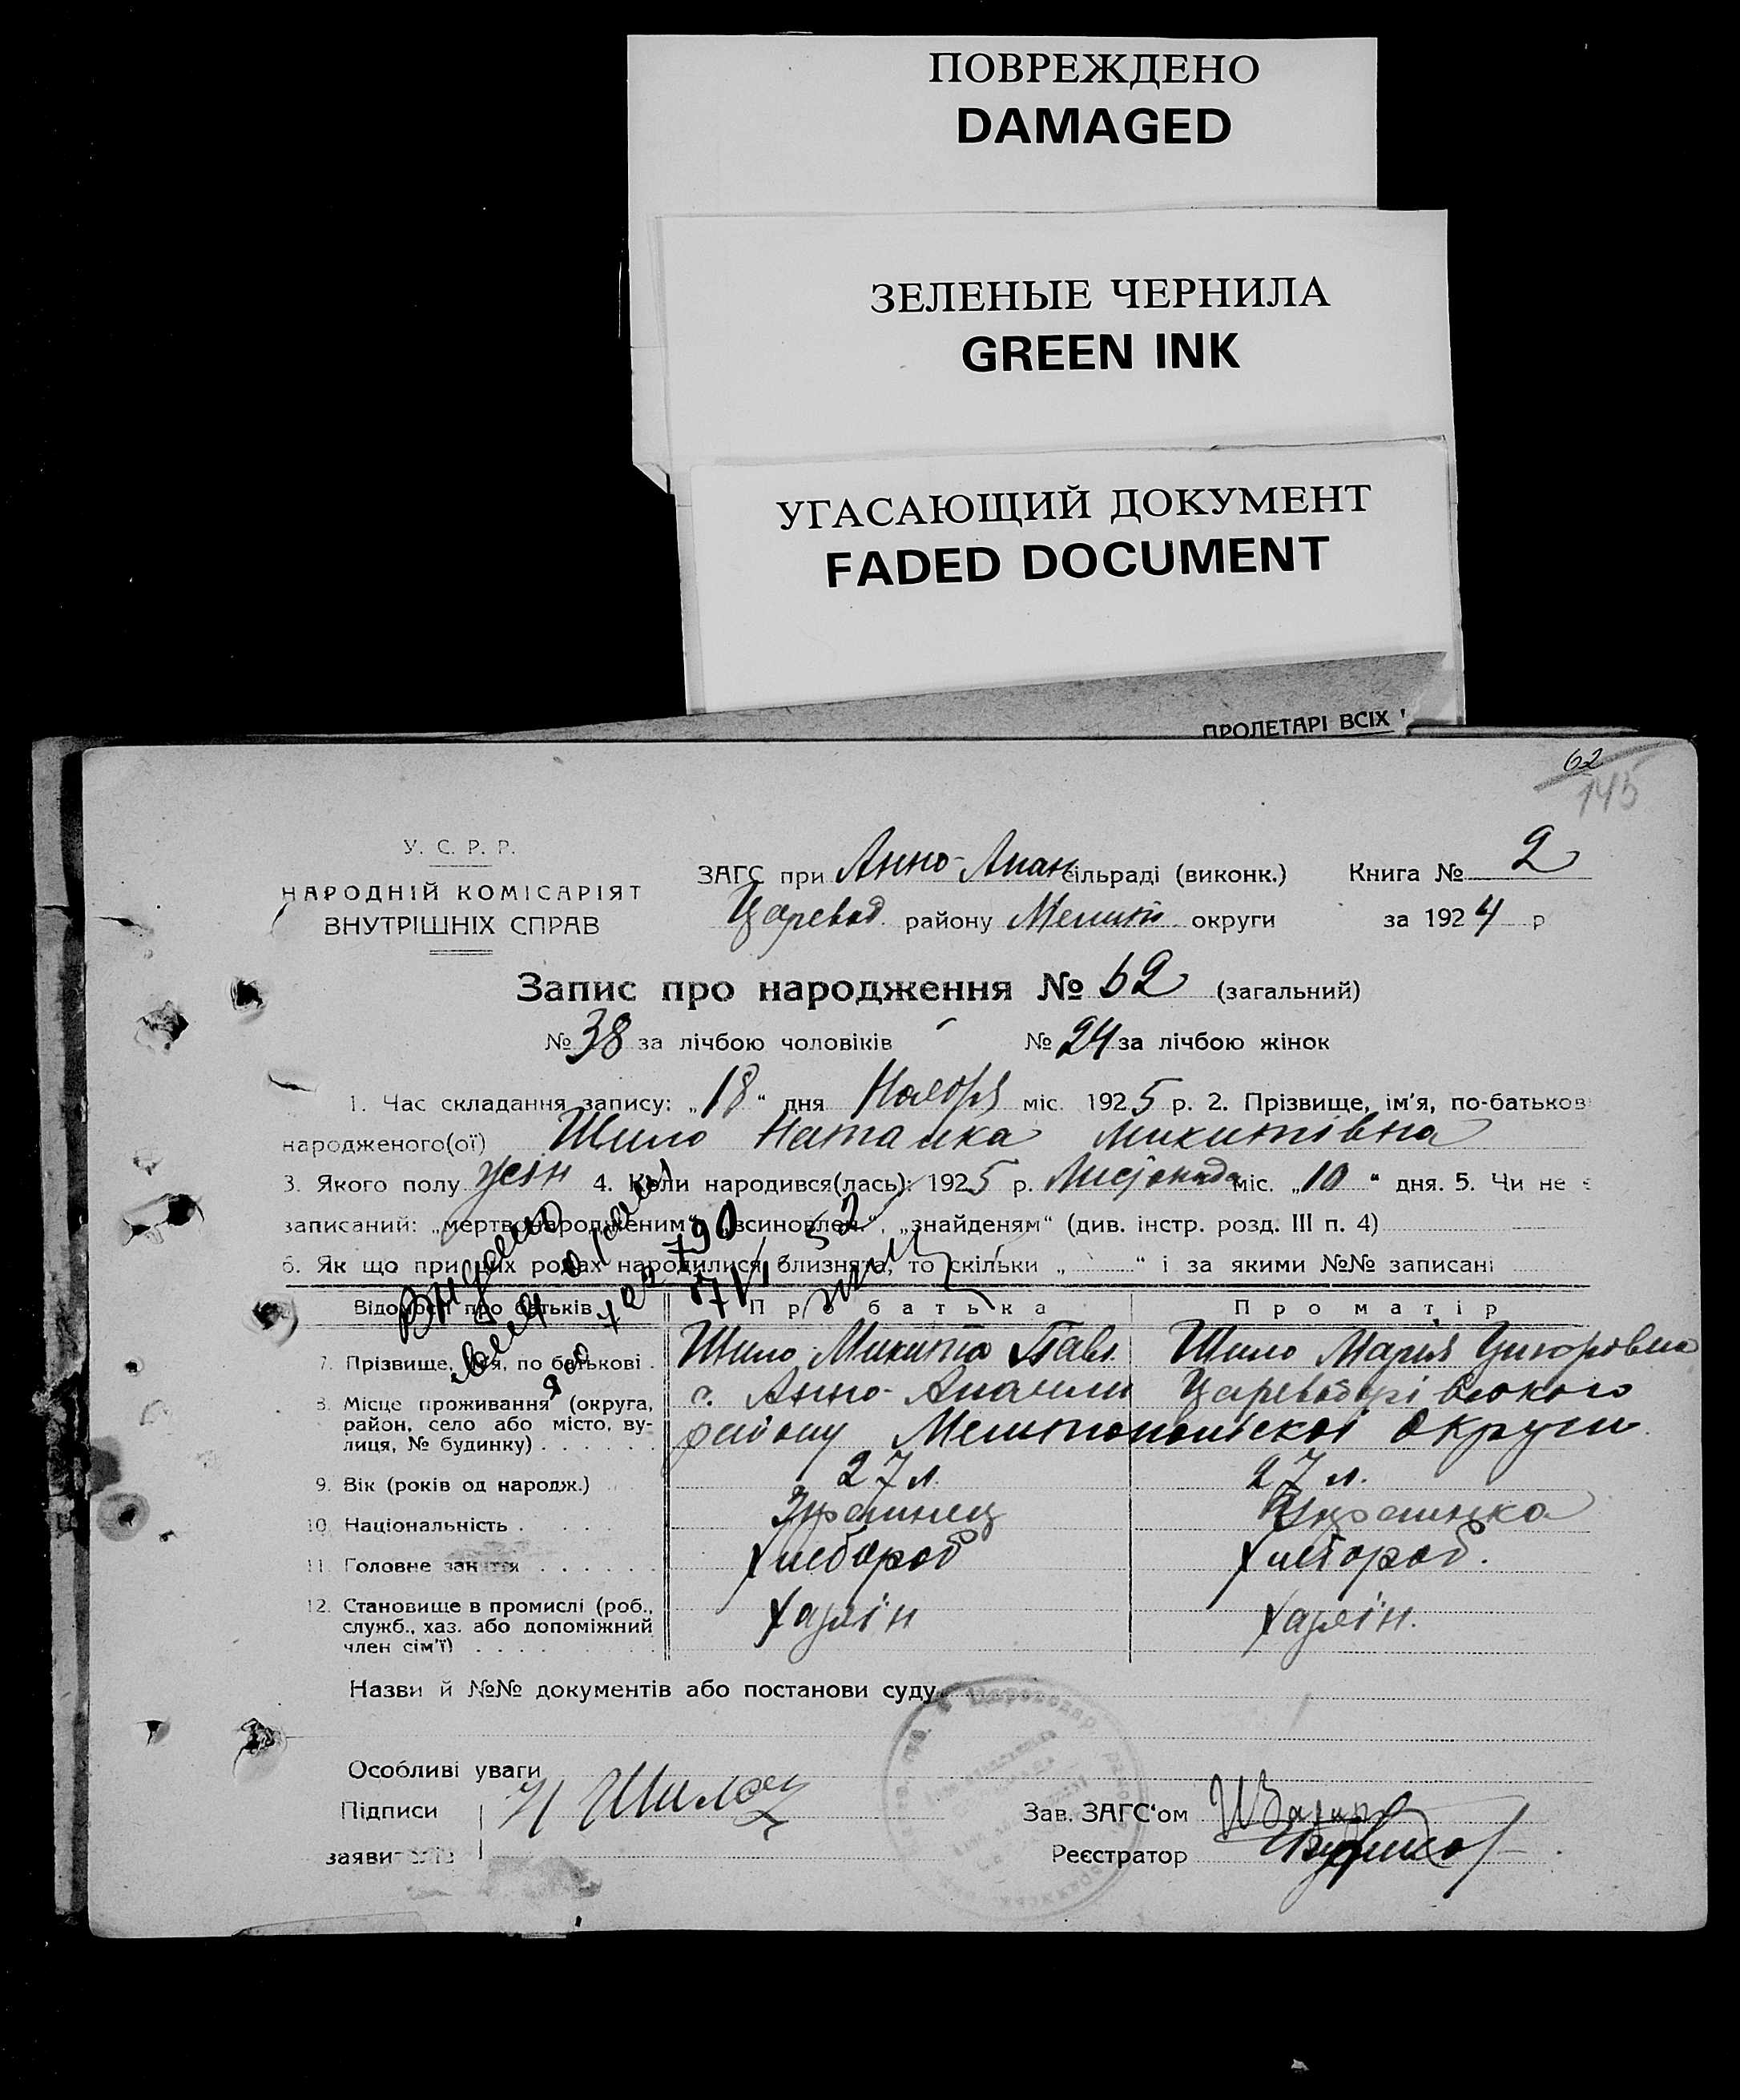 ПОВРЕЖДЕНО
DAMAGED
ЗЕЛЕНЫЕ ЧЕРНИЛА
GREEN INK
УГАСАЮЩИЙ ДОКУМЕНТ
FADED DOCUMENT
ПРОЛЕТАРІ ВСІХ
62
145
У. С. Р. Р.
НАРОДНІЙ КОМІСАРІЯТ
ВНУТРІШНІХ СПРАВ
ЗАГС при Анно-Апан сільраді (виконк.) Книга № 2
Царевод. району Мелит округи за 1924 р
Запис про народження № 62 (загальний)
№ 38 за лічбою чоловіків № 24 за лічбою жінок
1. Час складання запису: „18“ дня Ноября міс. 1925 р. 2. Прізвище, ім'я, по-батьков
народженого(ої) Шило Наталка Микитівна
3. Якого полу жін 4. Коли народився(лась): 1925 р. Листопада міс. „10“ дня. 5. Чи не є
записаний: „мертвонародженим“, „всиновлен.“, „знайденям“ (див. інстр. розд. III п. 4)
6. Як що при цих родах народилися близнята, то скільки „ “ і за якими №№ записані
Видано
790
52
Відомості про батьків Про батька Про матір
7. Прізвище, ім'я, по батькові . Шило Микита Павл. Шило Мария
8. Місце проживання (округа, район, село або місто, вулиця, № будинку) . . . . . . с. Анно-Апанли
району Мелитопольскої округи
9. Вік (років од народж.) 27 л. 27 л.
10. Національність . Украинец Украинка
11. Головне заняття . . . . . . Хлебороб Хлебороб.
12. Становище в промислі (роб.,
служб., хаз. або допоміжний
член сім'ї) . . . . Хазяїн Хазяїн.
Назви й №№ документів або постанови суду
Особливі уваги
Підписи Н Шило
заявителів
Зав. ЗАГС'ом
Реєстратор